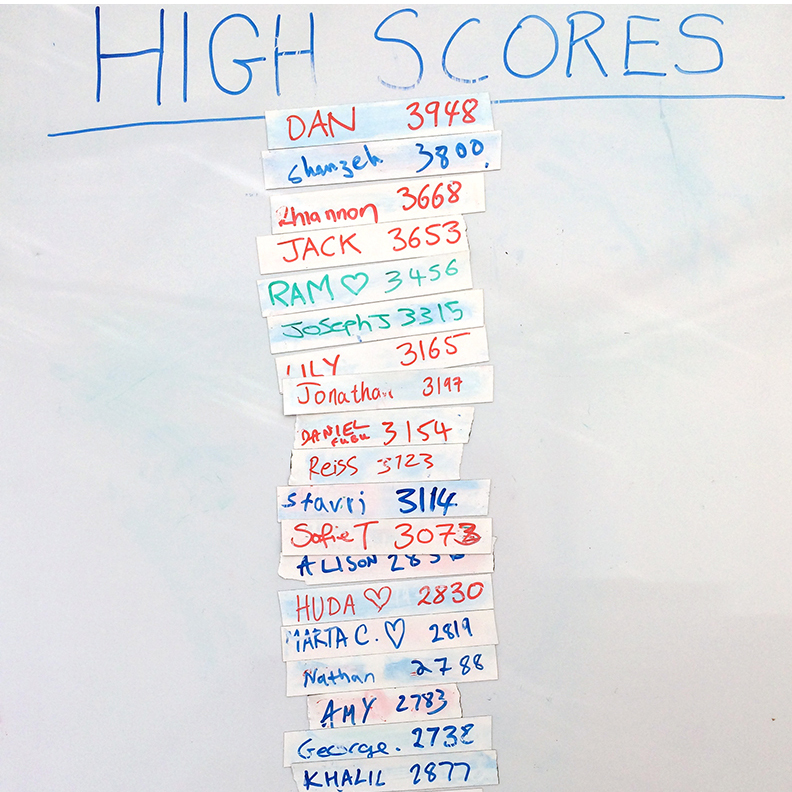 HIGH SCORES
DAN 3948
Shanzeh 3800.
Rhiannon 3668
JACK 3653
RAM ♡ 3456
Joseph J 3315
LILY 3165
Jonathan 3197
DANIEL FUBU 3154
Reiss 3123
Stavri 3114
Sofie T 3073
ALISON
HUDA ♡ 2830
MARTA C. ♡ 2819
Nathan 2788
AMY 2783
George. 2738
KHALIL 2877